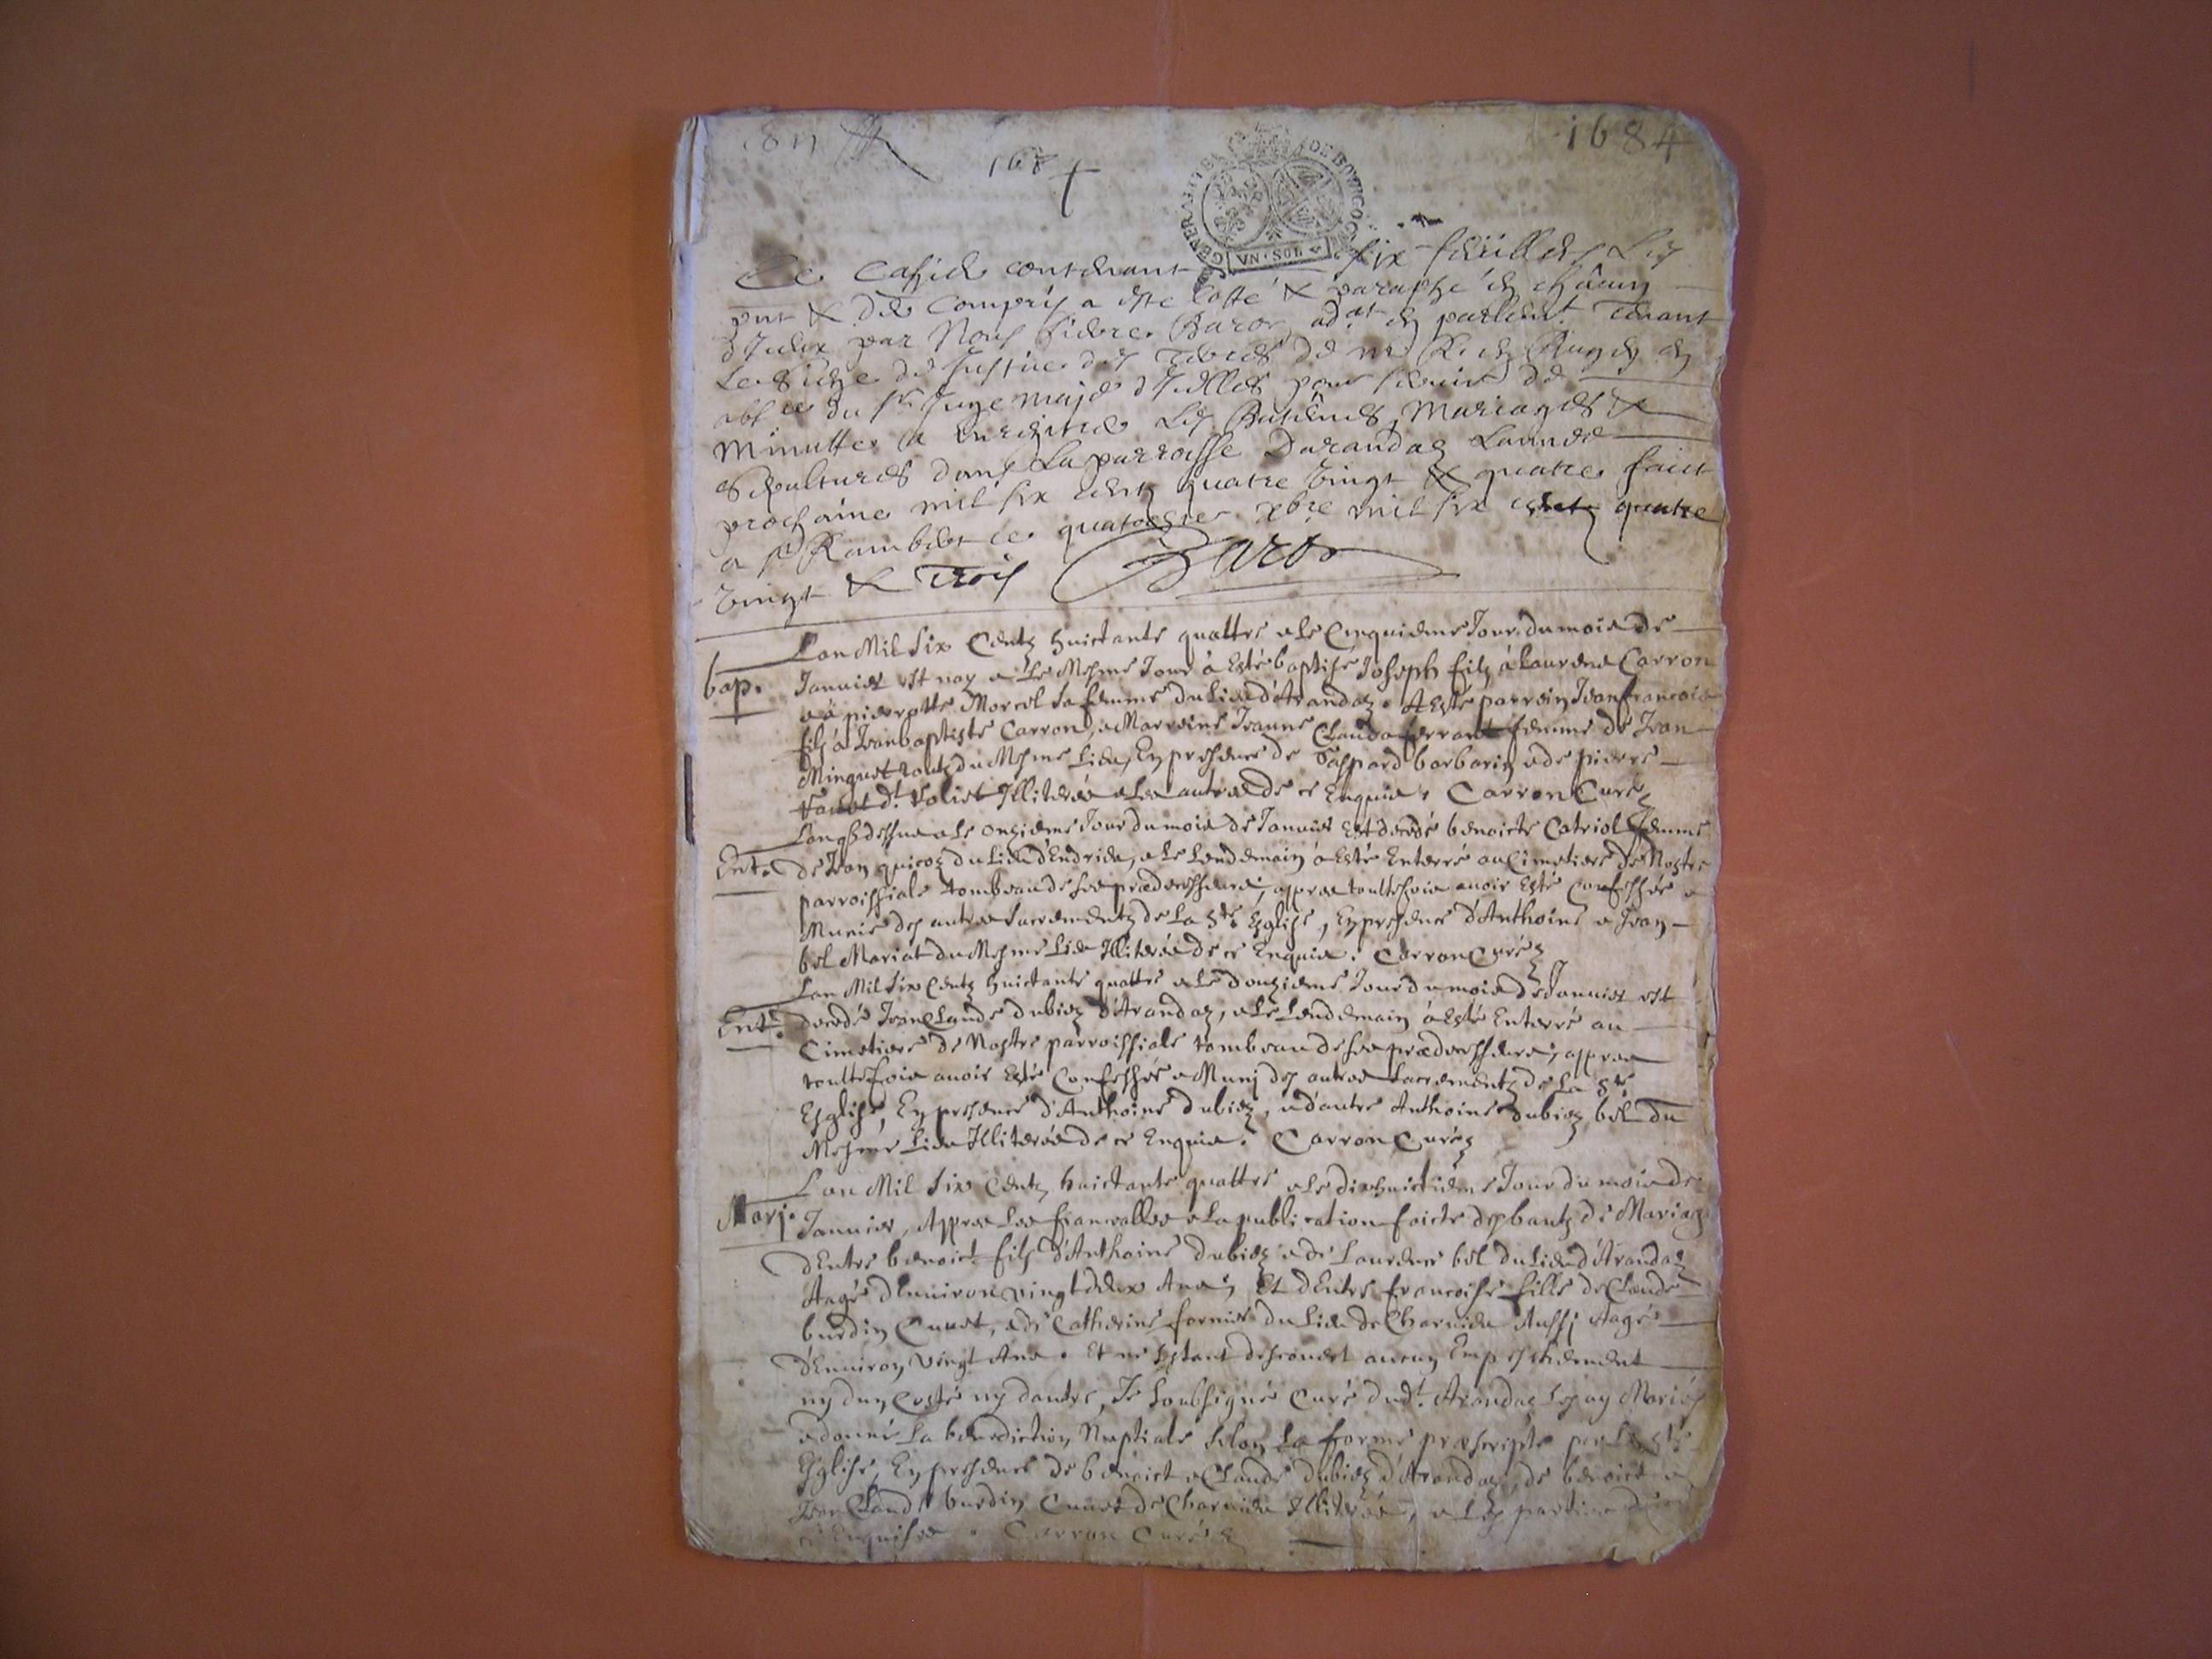 1684
1684
GENERALITE DE BOURGOGNE
VN · SOL
Ce Cahier contenant six feuilles Les
pnt & der Compris a este Cotté & paraphé en châcun
d'Iceux par Nous Pierre Baron adat en parlemt Tenant
Le Siege de Justice des Terres de
absce du sr Juge Maje d'Icelles pour servir de
Minutte a Enregitrer Les Batêmes, Mariages &
Sepultures dans La parroisse Darandaz Lannée
prochaine mil six Centz quatre vingt & quatre faict
a st Rambert ce quatorzie xbre mil six centz quatre
vingt & Trois Baron
Lan Mil Six Centz huictante quattre & le Cinquieme Jour du mois de
bap. Januier est nay & le Mesme Jour à Esté baptisé Joseph filz à Laurent Carron
& à pierrotte Morcel sa femme du Lieu d'Arandaz. A Esté parrein Jean francois
filz à Jean baptiste Carron, & Marreine Jeanne Clauda ferrant femme de Jean
Minguet touts du Mesme Lieu, En presence de Gaspard barbarin & de pierre
dt Voliet Illiterés & les autres de ce Enquis. Carron Curéz
Lan dessus & le onzieme Jour du mois de Januier Est decedé benoicte Catriol femme
Ent. de Jean quicoz du Lieu d'Endrieu, & le Lendemain à Esté Enterré au Cimetiere de Nostre
parroissiale tombeau de ses prædecesseurs, appres toutesfois auoir Esté Confessée &
Munie des autres Sacrementz de La Ste Esglise, En presence d'Anthoine & Jean
bel Mariat du Mesme Lieu Illiterés de ce Enquis. Carron Curéz
Lan Mil Six Centz huictante quattre & le douzieme Jour du mois de Januier est
Ent. decedé Jean Claude dubiez d'Arandaz, & le Lendemain à Esté Enterré au
Cimetiere de Nostre parroissiale tombeau de ses prædecesseurs, appres
toutesfois auoir Esté Confessé & Munj des autres Sacrementz de La Ste
Esglise, En presence d'Anthoine dubiez, & d'autre Anthoine dubiez bel du
Mesme Lieu Illiterés de ce Enquis. Carron Curéz
Lan Mil Six Centz huictante quattre & le dixhuictieme Jour du mois de
Marj. Januier, Appres Les fiancailles & La publication faicte des bantz de Mariage
d'Entre benoict filz d'Anthoine dubiez & de Laurence bel du Lieu d'Arandaz
Aagé d'Enuiron vingt deux Ans, Et d'Entre francoise fille de Claude
burdin Cunet, & de Catherine fornier du Lieu de Charuieu Aussj Aagé
d'Enuiron vingt Ans. Et ne s'Estant descouuert aucun Empeschement
ny d'un Costé ny dautre, Je Soubsigné Curé dudt Arandaz Les ay Mariés
& donné La benediction Nuptiale Selon La forme præscripte par La Ste
Esglise, En presence de benoict & Claude dubiez d'Arandaz, de benoict &
Jean Claude burdin Cunet de Charuieu Illiterés, & Les parties de
ce Enquises. Carron Curéz